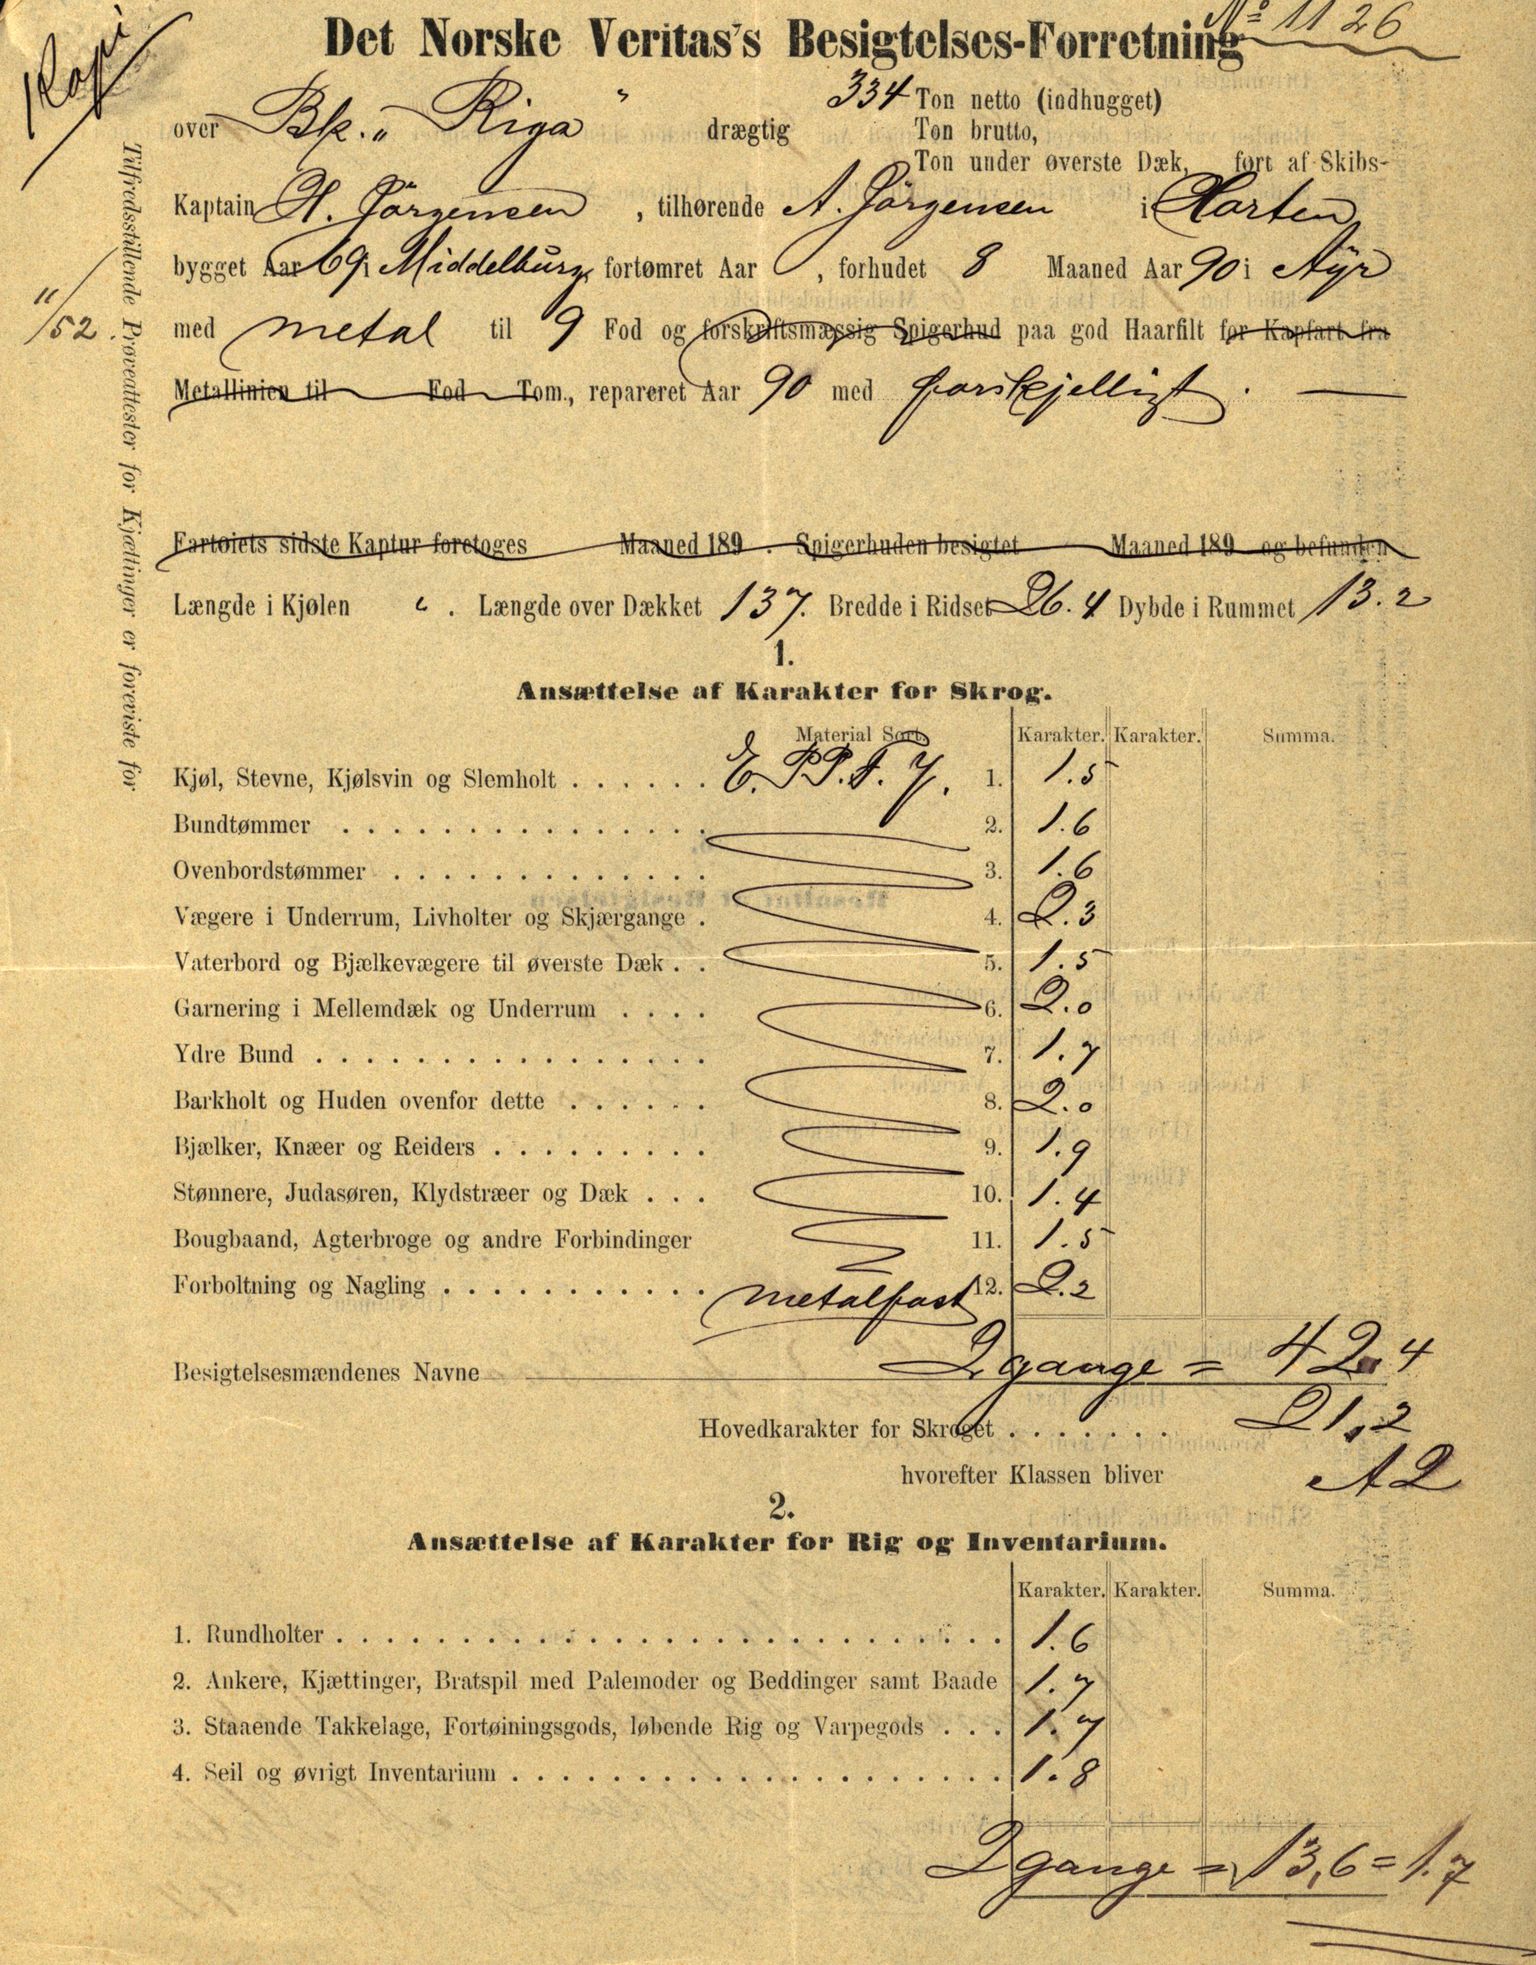 Kopi
No 1126
Det Norske Veritas's Besigtelses-Forretning
over Bk. „Riga" drægtig 334 Ton netto (indhugget)
Ton brutto,
Ton under øverste Dæk, ført af Skibs-
Kaptain H. Jörgensen, tilhørende A. Jörgensen i Horten
bygget Aar 69 i Middelburg, fortømret Aar , forhudet 8 Maaned Aar 90 i Ayr
med metal til 9 Fod og forskriftsmæssig Spigerhud paa god Haarfilt for Kapfart fra
Metallinien til Fod Tom., repareret Aar 90 med forskjelligt.
11/52.
Tilfredsstillende Prøveattester for Kjættinger er foreviste for
Fartøiets sidste Kaptur foretoges Maaned 189 . Spigerhuden besigtet Maaned 189 og befunden
Længde i Kjølen " . Længde over Dækket 137. Bredde i Ridset 26.4 Dybde i Rummet 13.2
1.
Ansættelse af Karakter for Skrog.
Material Sort. Karakter. Karakter. Summa.
Kjøl, Stevne, Kjølsvin og Slemholt . . . . . . E. P.P. F. 1. 1.5
Bundtømmer . . . . . . . . . . . . . . . 2. 1.6
Ovenbordstømmer . . . . . . . . . . . . . 3. 1.6
Vægere i Underrum, Livholter og Skjærgange . 4. 2.3
Vaterbord og Bjælkevægere til øverste Dæk . . 5. 1.5
Garnering i Mellemdæk og Underrum . . . . 6. 2.0
Ydre Bund . . . . . . . . . . . . . . . . 7. 1.7
Barkholt og Huden ovenfor dette . . . . . . 8. 2.0
Bjælker, Knæer og Reiders . . . . . . . . . 9. 1.9
Stønnere, Judasøren, Klydstræer og Dæk . . . 10. 1.4
Bougbaand, Agterbroge og andre Forbindinger 11. 1.5
Forboltning og Nagling . . . . . . . . . . . metalfast 12. 2.2
2 gange = 42.4
Besigtelsesmændenes Navne
Hovedkarakter for Skroget . . . . . . . 21,2
hvorefter Klassen bliver A2
2.
Ansættelse af Karakter for Rig og Inventarium.
Karakter. Karakter. Summa.
1. Rundholter . . . . . . . . . . . . . . . . . . . . . . . . . . 1.6
2. Ankere, Kjættinger, Bratspil med Palemoder og Beddinger samt Baade 1.7
3. Staaende Takkelage, Fortøiningsgods, løbende Rig og Varpegods . . . 1.7
4. Seil og øvrigt Inventarium . . . . . . . . . . . . . . . . . . . 1.8
2 gange = 13,6 = 1.7